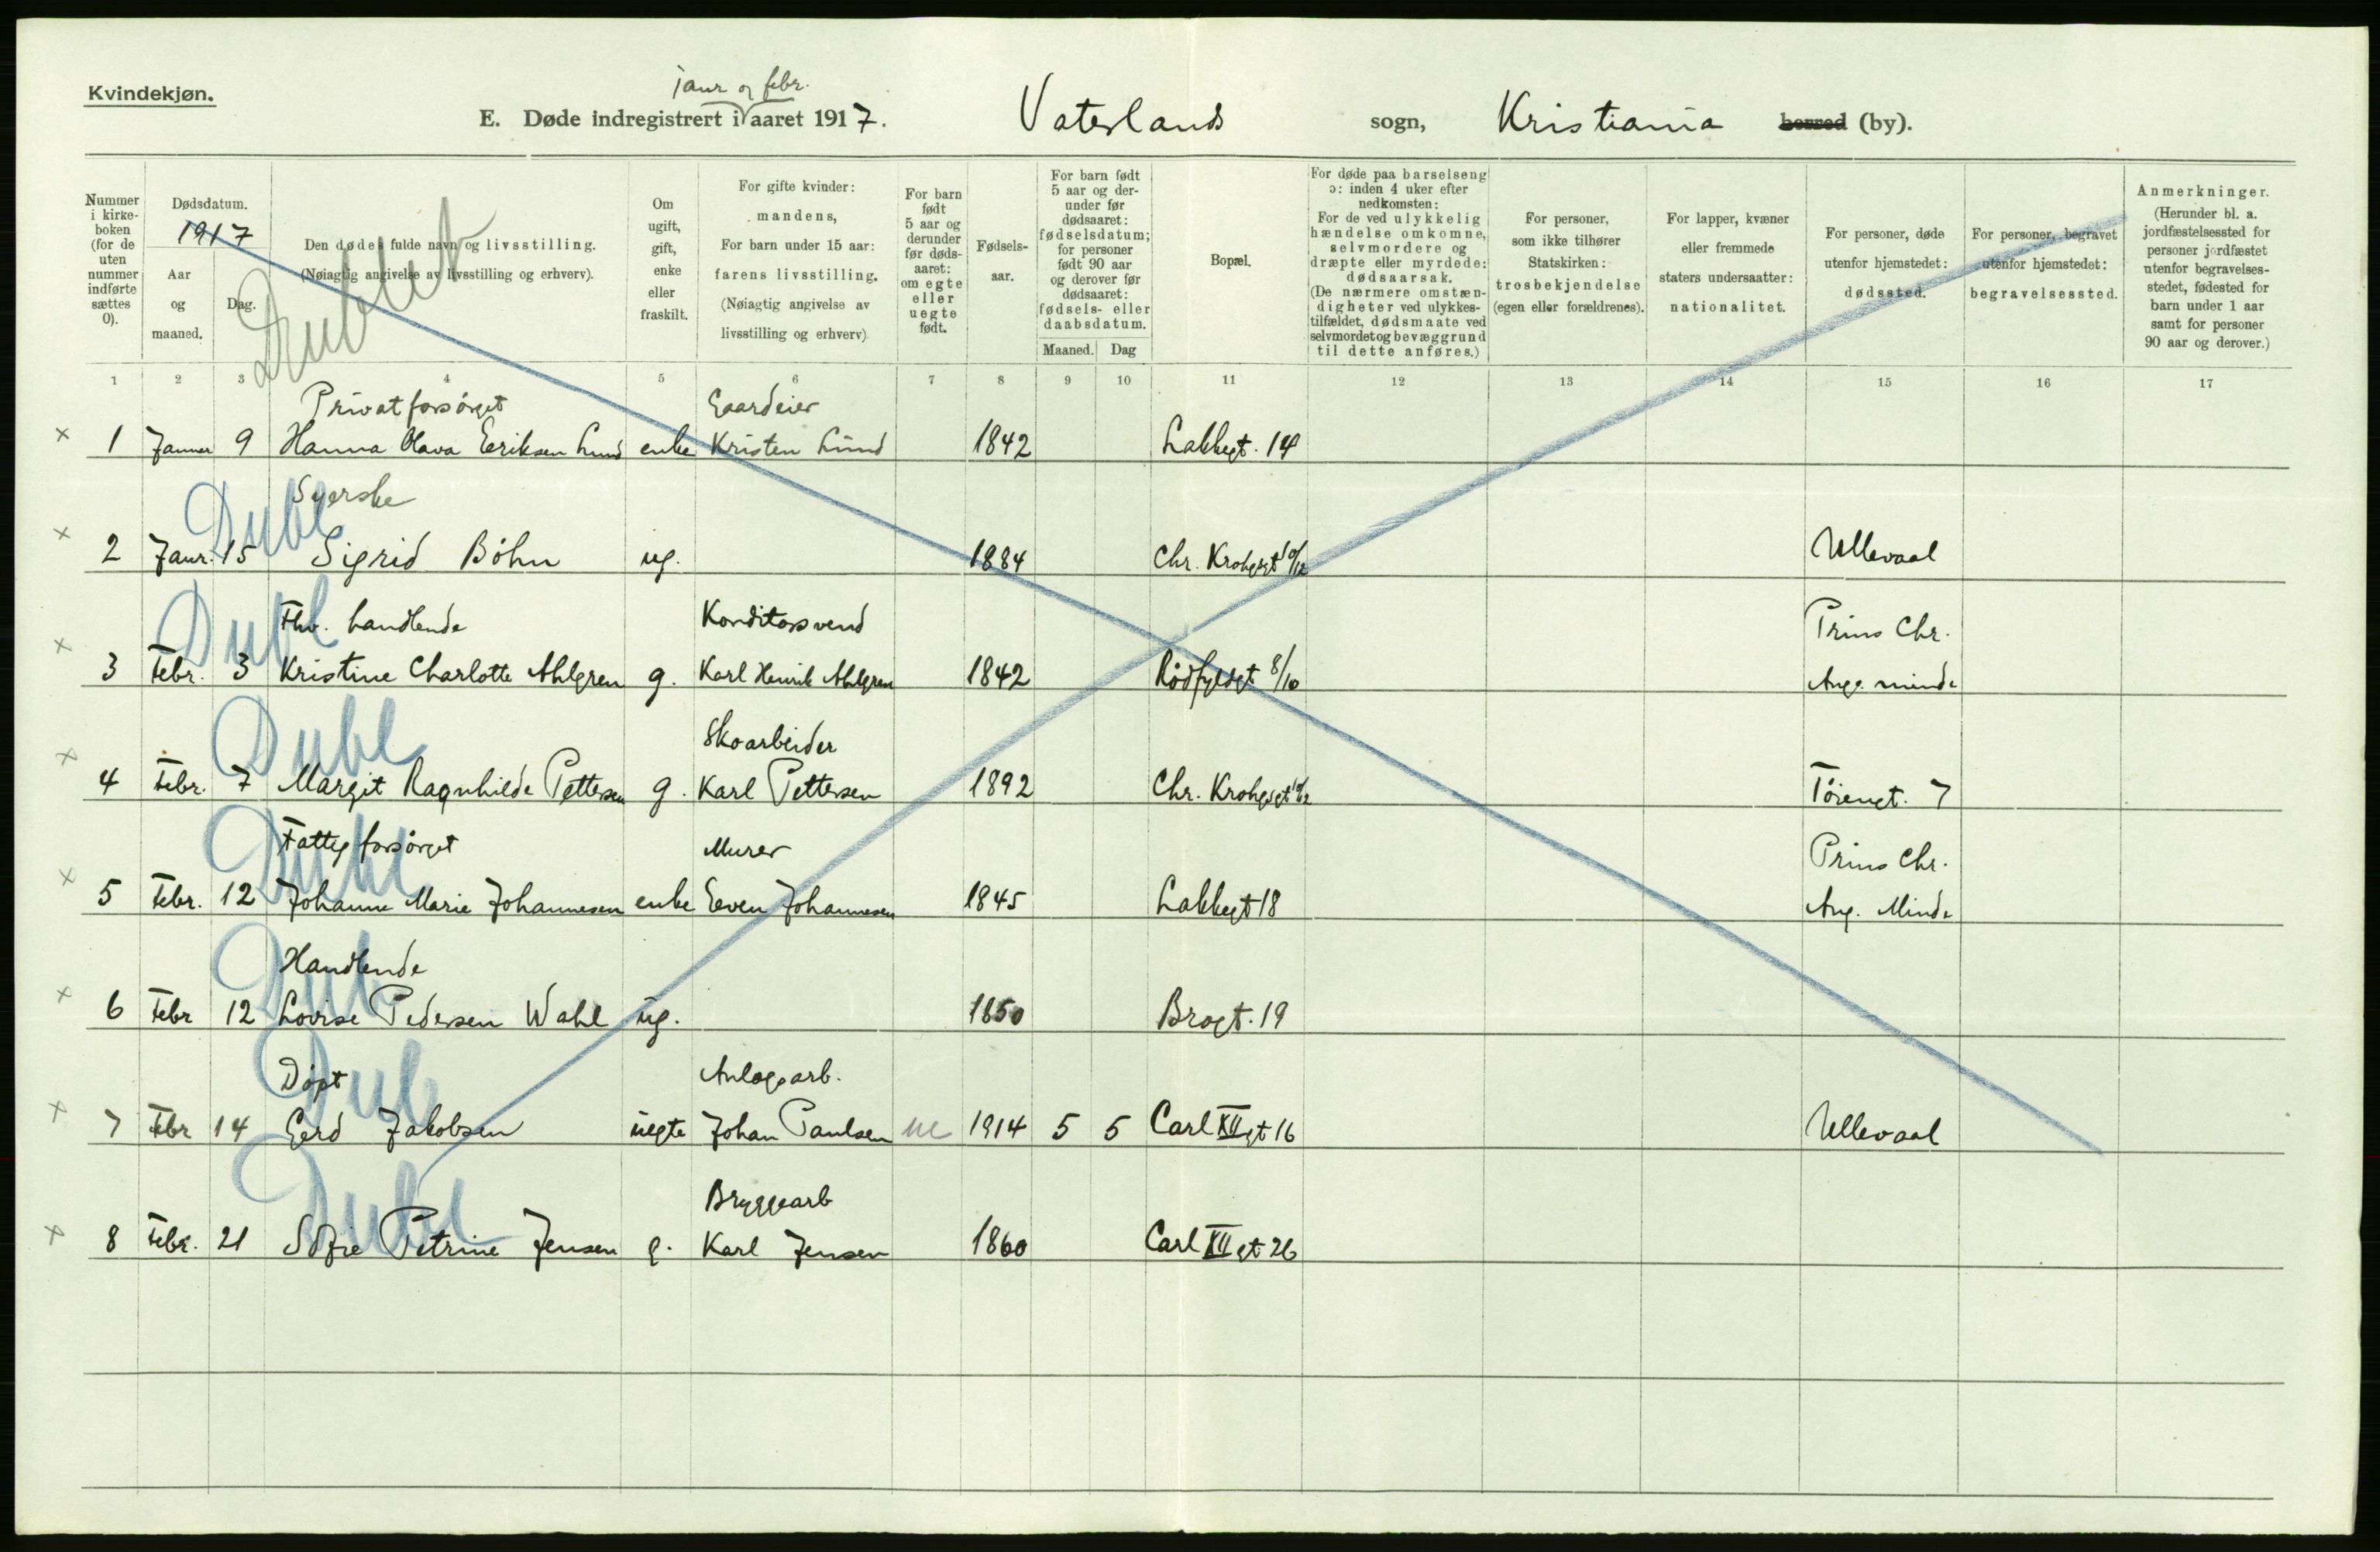 Kvindekjøn.
janr og febr.
E. Døde indregistrert i aaret 1917. Vaterlands sogn, Kristiania herred (by).
Nummer i kirke- boken (for de uten nummer indførte sættes 0).
Dødsdatum.
1917
Aar og maaned.
Dag.
Den dødes fulde navn og livsstilling.
(Nøiagtig angivelse av livsstilling og erhverv).
Dublet
Om ugift, gift, enke eller fraskilt.
For gifte kvinder: mandens,
For barn under 15 aar: farens livsstilling.
(Nøiagtig angivelse av livsstilling og erhverv)
For barn født 5 aar og derunder før døds- aaret: om egte eller uegte født.
Fødsels- aar.
For barn født 5 aar og der- under før dødsaaret: fødselsdatum; for personer født 90 aar og derover før dødsaaret: fødsels- eller daabsdatum.
Maaned. Dag
Bopæl.
For døde paa barselseng ɔ: inden 4 uker efter nedkomsten:
For de ved ulykkelig hændelse omkomne, selvmordere og dræpte eller myrdede: dødsaarsak.
(De nærmere omstæn- digheter ved ulykkes- tilfældet, dødsmaate ved selvmordet og bevæggrund til dette anføres.)
For personer, som ikke tilhører Statskirken: trosbekjendelse (egen eller forældrenes).
For lapper, kvæner eller fremmede staters undersaatter: nationalitet.
For personer, døde utenfor hjemstedet: dødssted.
For personer, begravet utenfor hjemstedet: begravelsessted.
Anmerkninger.
(Herunder bl. a. jordfæstelsessted for personer jordfæstet utenfor begravelses- stedet, fødested for barn under 1 aar samt for personer 90 aar og derover.)
1 2 3 4 5 6 7 8 9 10 11 12 13 14 15 16 17
Privatforsørget Gaardeier
× 1 Januar 9 Hanna Olava Eriksen Lund enke Kristen Lund 1842 Lakkegt. 14
Syerske
Dubl
× 2 Janr. 15 Sigrid Böhn ug. 1884 Chr. Krohgsgt 10/12 Ullevaal
Dubl
Fhv. handlende Konditorsvend Prins Chr.
× 3 Febr. 3 Kristine Charlotte Ahlgren g. Karl Henrik Ahlgren 1842 Rødfyldgt 8/10 Aug. minde
Dubl
Skoarbeider
× 4 Febr. 7 Margit Ragnhilde Pettersen g. Karl Pettersen 1892 Chr. Krohgsgt Tøiengt. 7
Dubl
Fattigforsørget Murer Prins Chr.
× 5 Febr. 12 Johanne Marie Johannesen enke Even Johannesen 1845 Lakkegt 18 Aug. Minde
Dub
Handlende
× 6 Febr 12 Lovise Pedersen Wahl ug. 1850 Brogt. 19
Dub
Døpt Anlegsarb.
× 7 Fbr 14 Gerd Jakobsen uegte Johan Paulsen ue 1914 5 5 Carl XII gt 16 Ullevaal
Dubl
Bryggearb
× 8 Febr. 21 Sofie Petrine Jensen g. Karl Jensen 1860 Carl XII gt 26